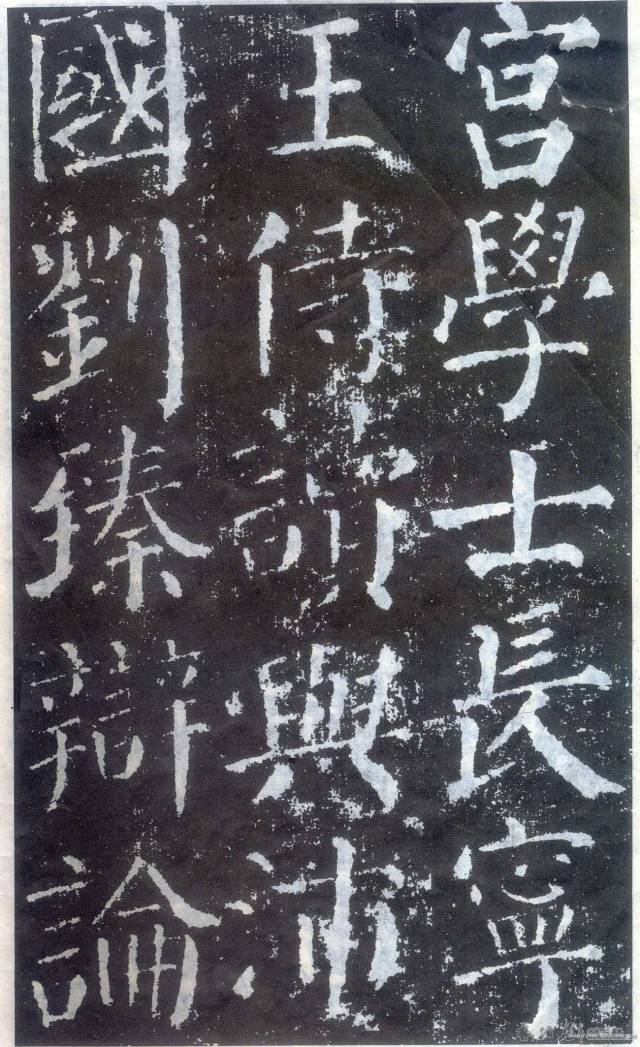 宮學士長寧
王侍與沛
國劉臻辯論